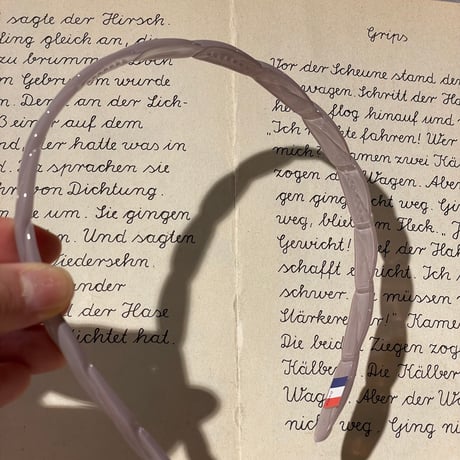 sagte der Hirsch.
ling gleich an, die
zu brummen. Doch
m Gebrumm wurde
n. Denn an der Lich-
ß einer auf dem
nd, der hatte was in
d. Da sprachen sie
hn von Dichtung.
ne um. Sie gingen
n. Und sagten
iedersehn.
ander
d der Hase
dichtet hat.
Grips
Vor der Scheune stand der
wagen. Schritt der Ha
he flog hinauf und
„Ich möchte fahren! Wer
mich?" Kamen zwei Kä
zogen der Wagen. Aber
gen ging nicht weg. Gin
weg, blieb am Fleck. „I
Gewicht! ef der Hah
schafft es nicht. Ich
schwer. müssen
Stärkere r!" Kamen
Die beiden Ziegen zog
Kälber. Die Kälb
Wagen. Aber der Wa
nicht weg. Ging ni